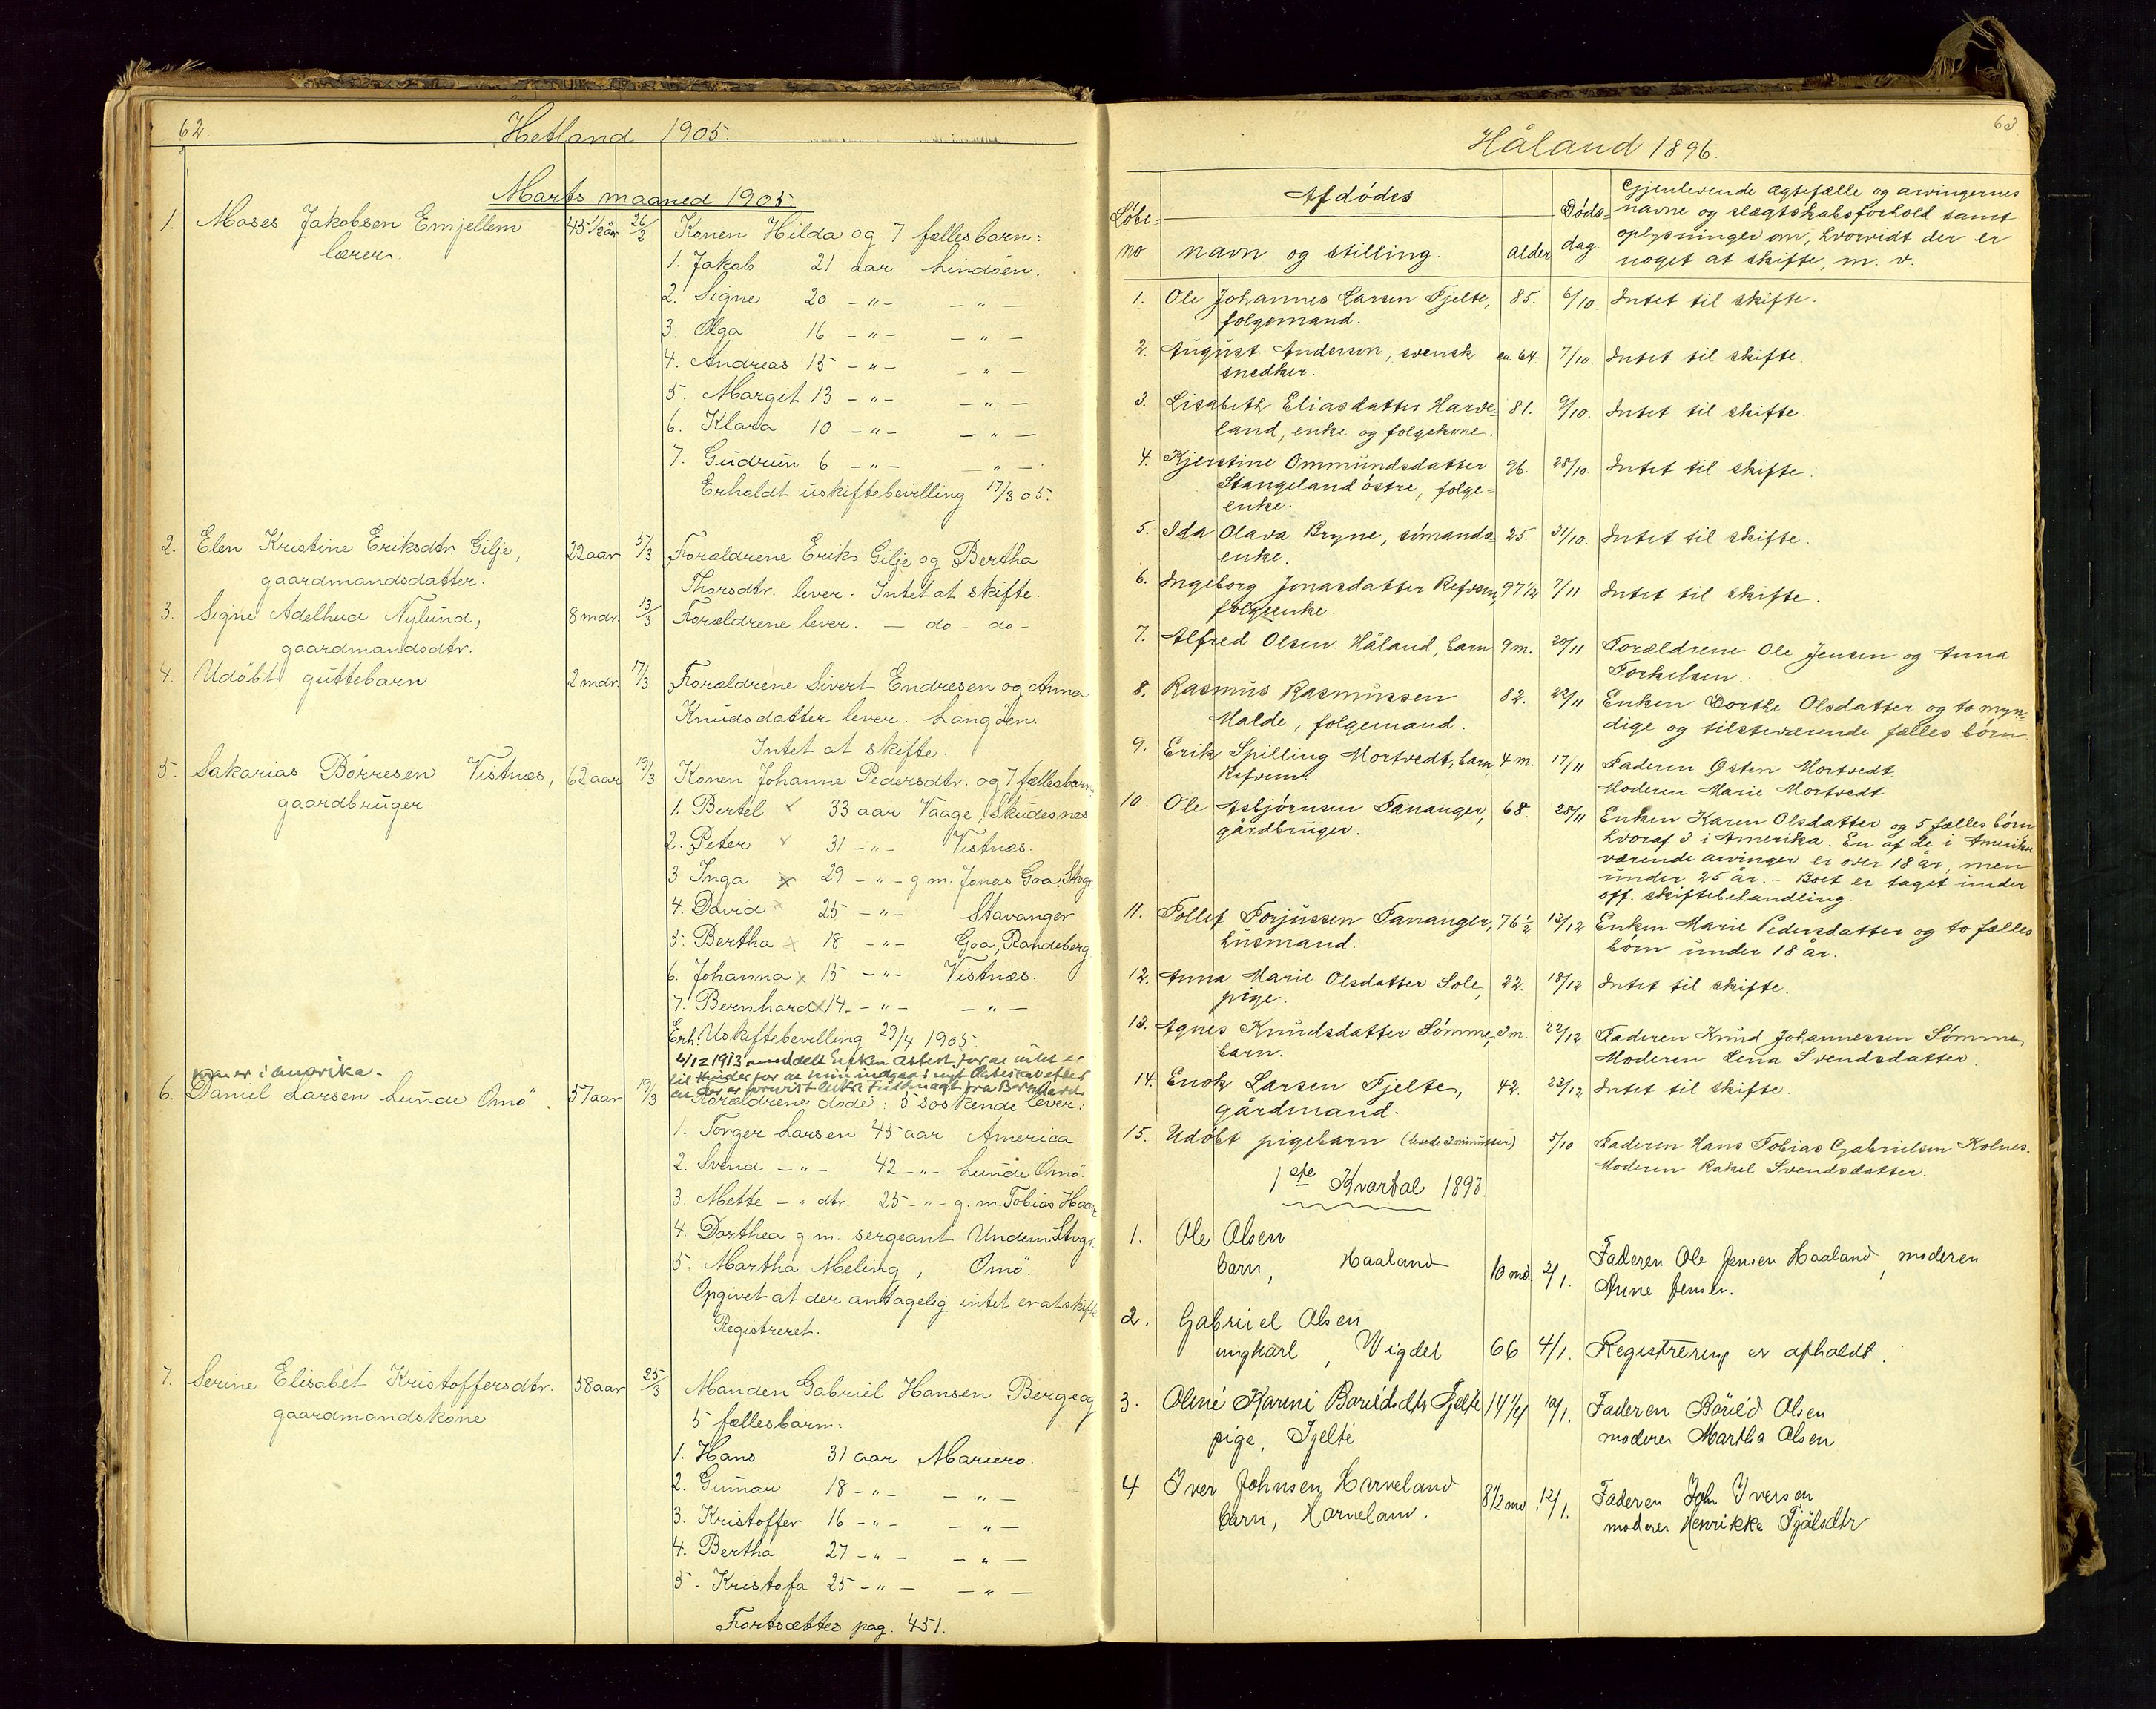 62.
Hetland 1905.
Marts maaned 1905.
1. Moses Jakobsen Emjellem 45 1/2 år 26/2 Konen Hilda og 7 fællesbarn:
lærer.
1. Jakob 21 aar Lindöen.
2. Signe 20 -"- -"-
3. Olga 16 -"- -"-
4. Andreas 15 -"- -"-
5. Margit 13 -"- -"-
6. Klara 10 -"- -"-
7. Gudrun 6 -"- -"-
Erholdt uskiftebevilling 17/3 05.
2. Elen Kristine Eriksdtr. Gilje, 22 aar 5/3 Forældrene Erik Gilje og Bertha
gaardmandsdatter. Thorsdtr. lever. Intet at skifte.
3. Signe Adelheid Nylund, 8 mdr. 13/3 Forældrene lever. - do - do -
gaardmandsdtr.
4. Udöbt guttebarn 2 mdr. 17/3 Forældrene Sivert Endresen og Anna
Knudsdatter lever. Langöen.
Intet at skifte.
5. Sakarias Börresen Vistnæs, 62 aar 19/3 Konen Johanne Pedersdtr. og 7 fællesbarn
gaardbruger.
1. Bertel x 33 aar Vaage, Skudesnes
2. Peter x 31 -"- Vistnæs.
3 Inga x 29 -"- g.m. Jonas Goa, Stvgr.
4. David x 25 -"- Stavanger
5. Bertha x 18 -"- Goa, Randeberg
6. Johanna x 15 -"- Vistnæs.
7. Bernhard x 14. -"- -"-
Erh. Uskiftebevilling 29/4 1905.
6/12 1913 meddelt Enken Attest for at intet er
til Hinder for at hun indgaar nyt Ægteskab efter
at der er forevist
6. Daniel Larsen Lunde Omö. 57 aar 19/3 Forældrene döde: 5 söskende lever:
1. Torger Larsen 45 aar America.
2. Svend -"- 42 -"- Lunde Omö.
3. Mette -"- dtr. 25 -"- g.m. Tobias Haar
4. Dorthea g.m. sergeant Undem Stvgr.
5. Martha Meling, Omö.
Opgivet at der antagelig intet er at skifte
Registreret.
7. Serine Elisabet Kristoffersdtr. 58 aar 25/3 Manden Gabriel Hansen Berge og
gaardmandskone 5 fællesbarn:
1. Hans 31 aar Mariero.
2. Gunnar 18 -"- -"-
3. Kristoffer 16 -"- -"-
4. Bertha 27 -"- -"-
5. Kristofa 25 -"- -"-
Fortsættes pag. 451.
63.
Håland 1896.
Løbe-no
Afdødes
navn og stilling.
alder
Døds-dag.
Gjenlevende ægtefælle og arvingernes
navne og slægtskabsforhold samt
oplysninger om, hvorvidt der er
noget at skifte, m. v.
1. Ole Johannes Larsen Tjelte, 85. 6/10. Intet til skifte.
folgemand.
2. August Anderson, svensk ca 64. 7/10. Intet til skifte.
snedker.
3. Lisabeth Eliasdatter Harve- 81. 9/10. Intet til skifte.
land, enke og folgekone.
4. Kjerstine Ommundsdatter 96. 28/10. Intet til skifte.
Stangeland østre, folge-
enke.
5. Ida Olava Bryne, sømands- 25. 31/10. Intet til skifte.
enke.
6. Ingeborg Jonasdatter Refsem, 97 1/2 7/11 Intet til skifte.
folgeenke.
7. Alfred Olsen Håland, barn 9 m. 20/11 Forældrene Ole Jensen og Anna
Torkelsen.
8. Rasmus Rasmussen 82. 22/11 Enken Dorthe Olsdatter og to myn-
Malde, folgemand. dige og tilstværende fælles børn.
9. Erik Spilling Mortvedt, barn, 4 m. 17/11 Faderen Østen Mortvedt.
Refsem. Moderen Marie Mortvedt.
10. Ole Asbjørnsen Tananger, 68. 28/11 Enken Karen Olsdatter og 5 fælles børn
gårdbruger. hvoraf 3 i Amerika. En af de i Amerika
værende arvinger er over 18 år, men
under 25 år. - Boet er taget under
off. skiftebehandling.
11. Tollef Torjussen Tananger, 76 1/2 13/12 Enken Marie Pedersdatter og to fælles
husmand. børn under 18 år.
12. Anna Marie Olsdatter Sole, 22. 18/12 Intet til skifte.
pige.
13. Agnes Knudsdatter Sømme, 3 m. 22/12 Faderen Knud Johannessen Sømme,
barn. Moderen Lena Svendsdatter.
14. Enok Larsen Tjelte, 42. 23/12 Intet til skifte.
gårdmand.
15. Udøbt pigebarn (levede 3 minutter) 5/10 Faderen Hans Tobias Gabrielsen Kolnes.
Moderen Rakel Svendsdatter.
1ste Kvartal 1893.
1. Ole Olsen
barn, Haaland 10 md. 2/1. Faderen Ole Jensen Haaland, moderen
Anne Jensen.
2. Gabriel Olsen
ungkarl, Vigdel 66 4/1. Registrering er afholdt.
3. Oline Karine Bårdsdtr Tjelte 14 1/4 10/1. Faderen Bård Olsen
pige, Tjelte moderen Martha Olsen
4 Iver Johnsen Harveland 8 1/2 md. 12/1. Faderen John Iversen
barn, Harveland. moderen Henrikke